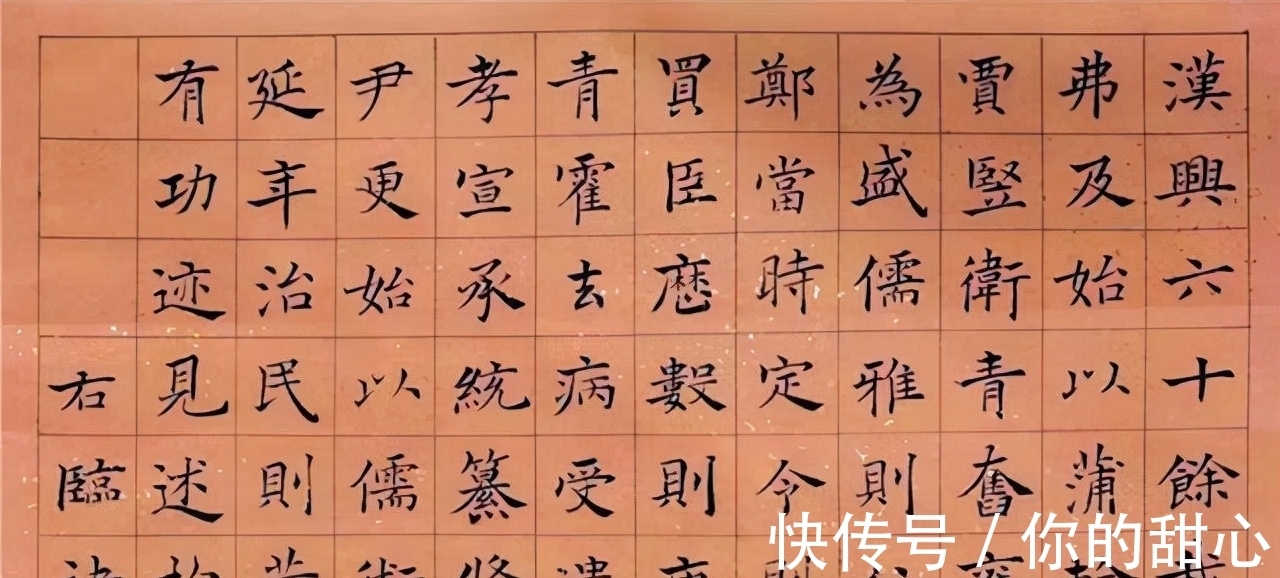 漢興六十餘
弗及始以蒲
賈豎衛青奮
為盛儒雅則
鄭當時定令
買臣歷數則
青霍去病受
孝宣承統纂
尹更始以儒
延年治民則
有功迹見述
右臨
快传号 / 你的甜心